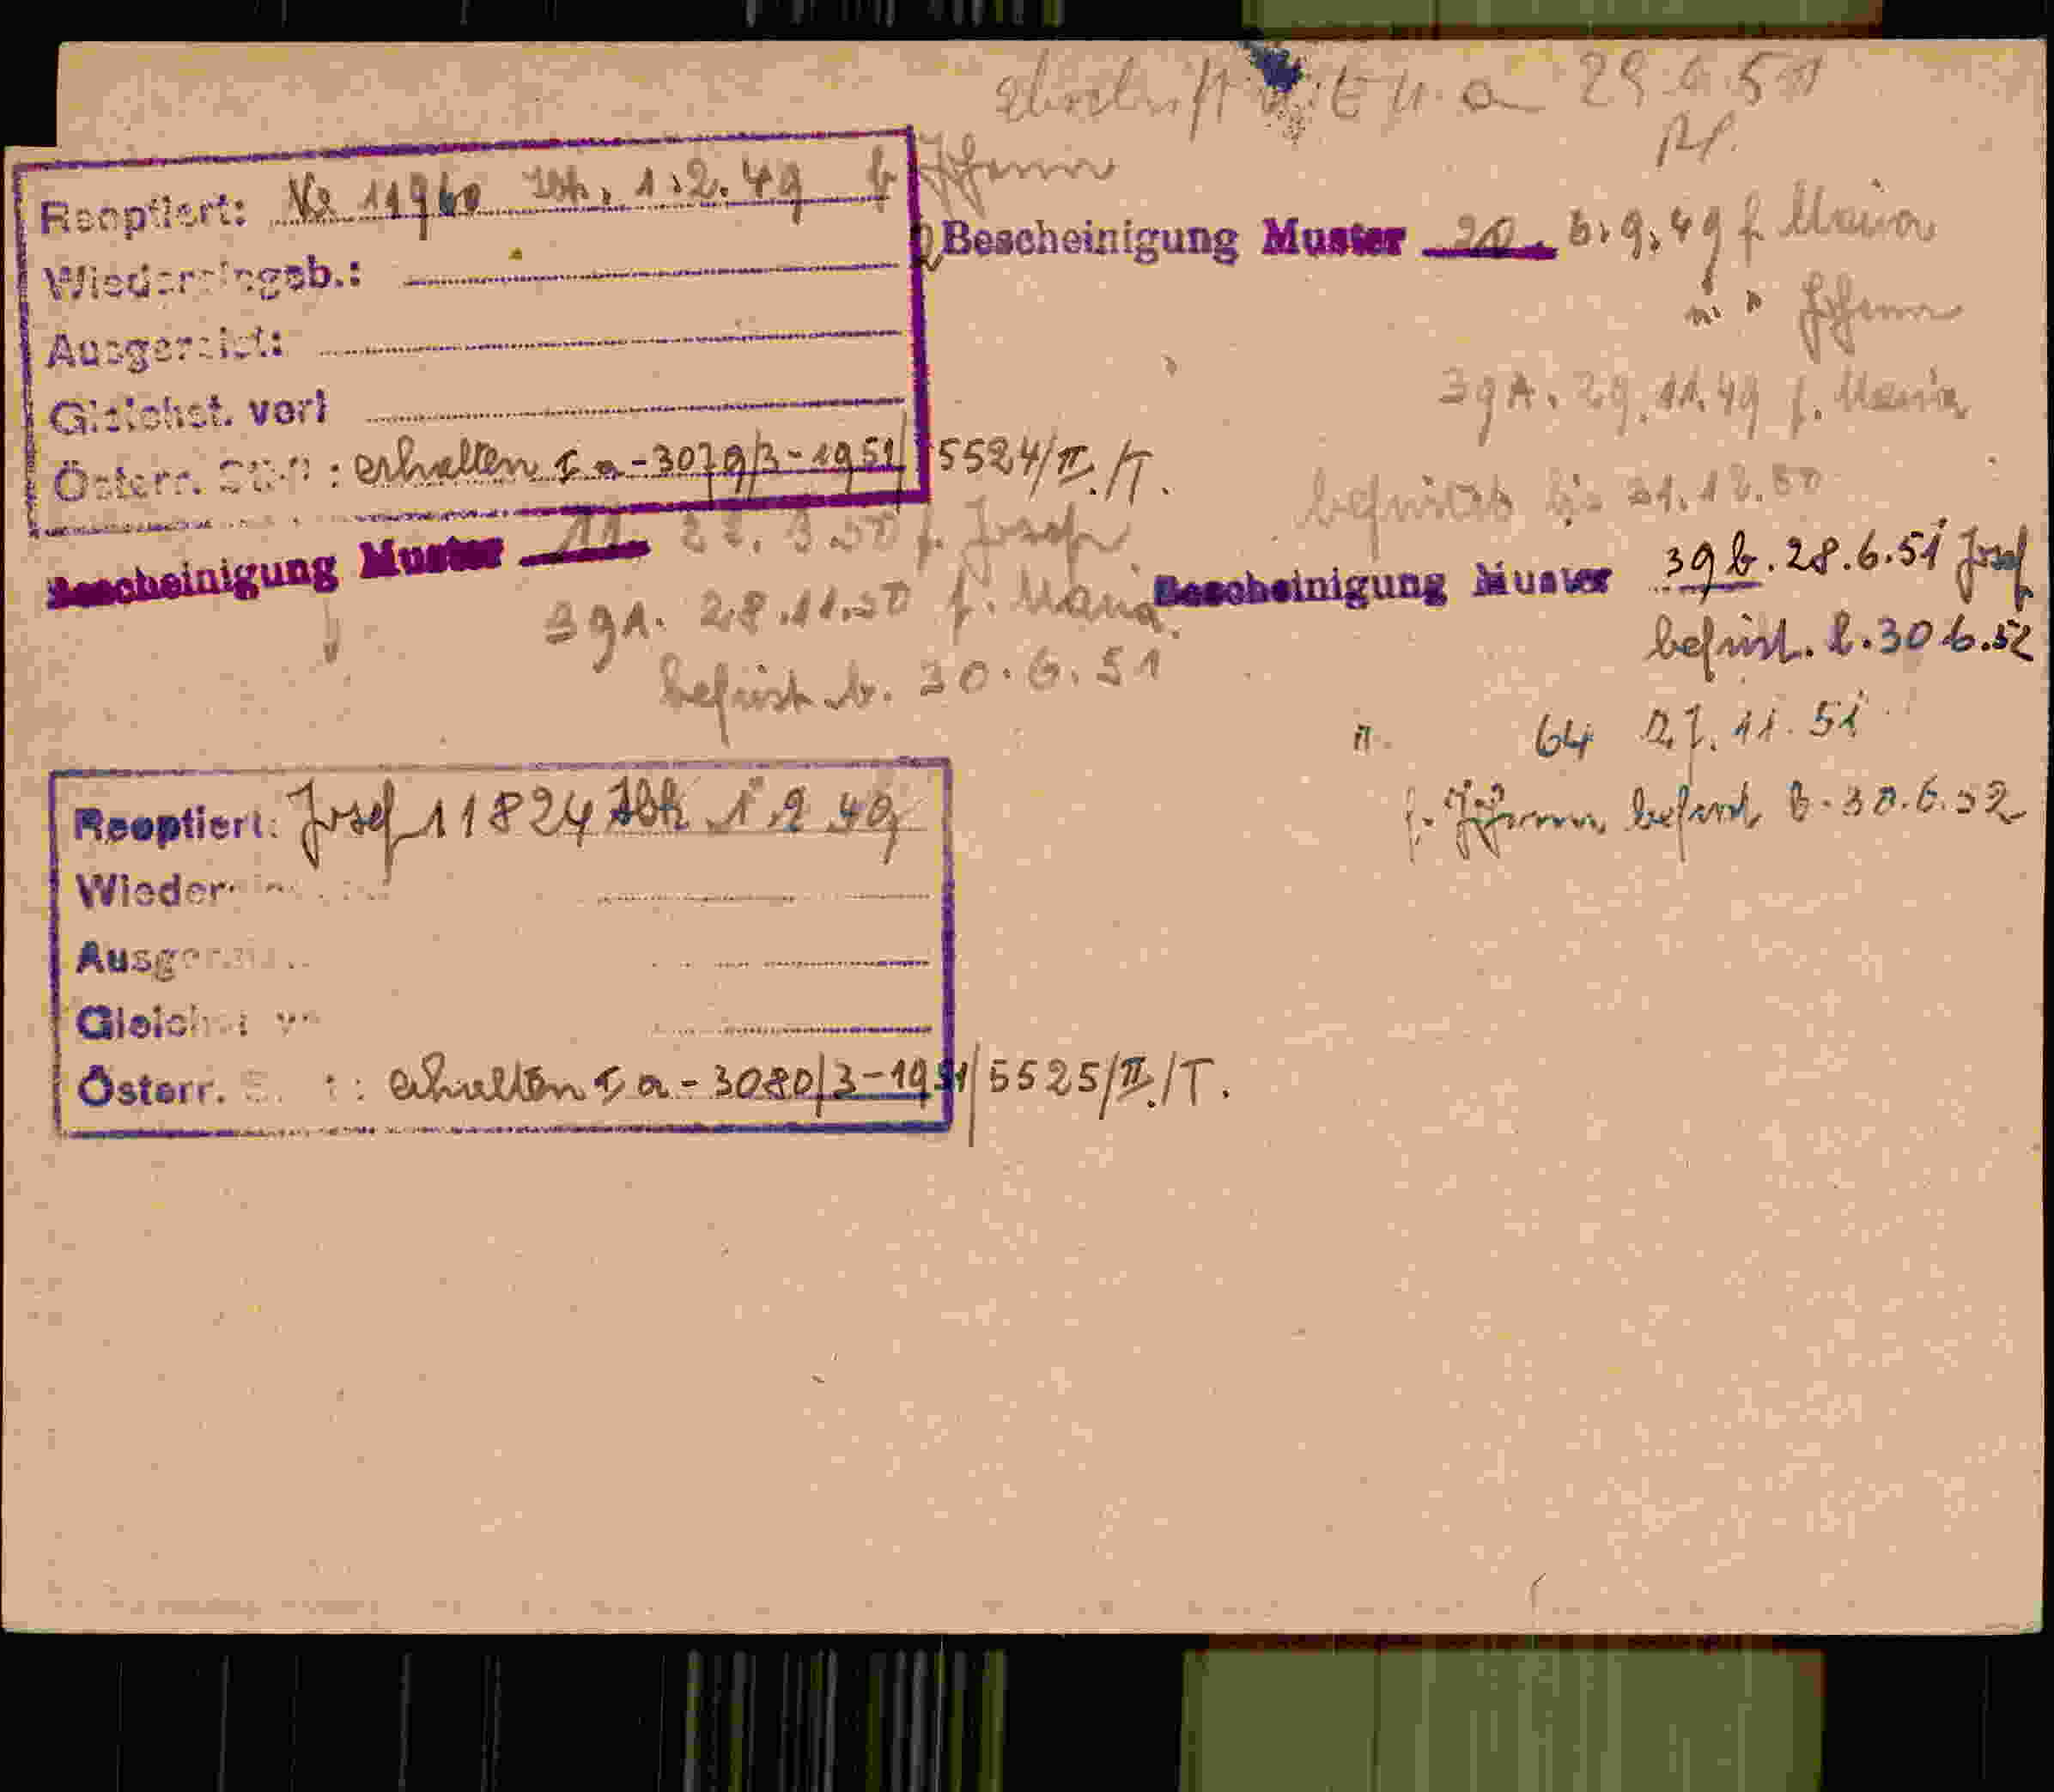 Abschrift a 29.6.51
Reoptiert: No 11960 Ibk. 1.2.49 f. Johann
Wiedereingeb.:
Ausgereist:
Gleichst. vorl
Österr. : erhalten I a - 3079/3-1951/5524/II./T.
Bescheinigung Muster 20. 6.9.49 f. Maria
" " Johann
39A. 29.11.49 f. Maria
befristet bis 31.12.50
Bescheinigung Muster 11. 22.3.50 f. Josef
39A. 28.11.50 f. Maria
befrist. b. 30.6.51
Bescheinigung Muster 39b. 28.6.51 Josef
befrist. b. 30.6.52
" 64 27.11.51
f. Johann befrist. b. 30.6.52
Reoptiert: Josef 11824 Ibk 1.2.49
Wieder
Ausger
Gleich
Österr. : erhalten I a - 3080/3-1951/5525/II./T.